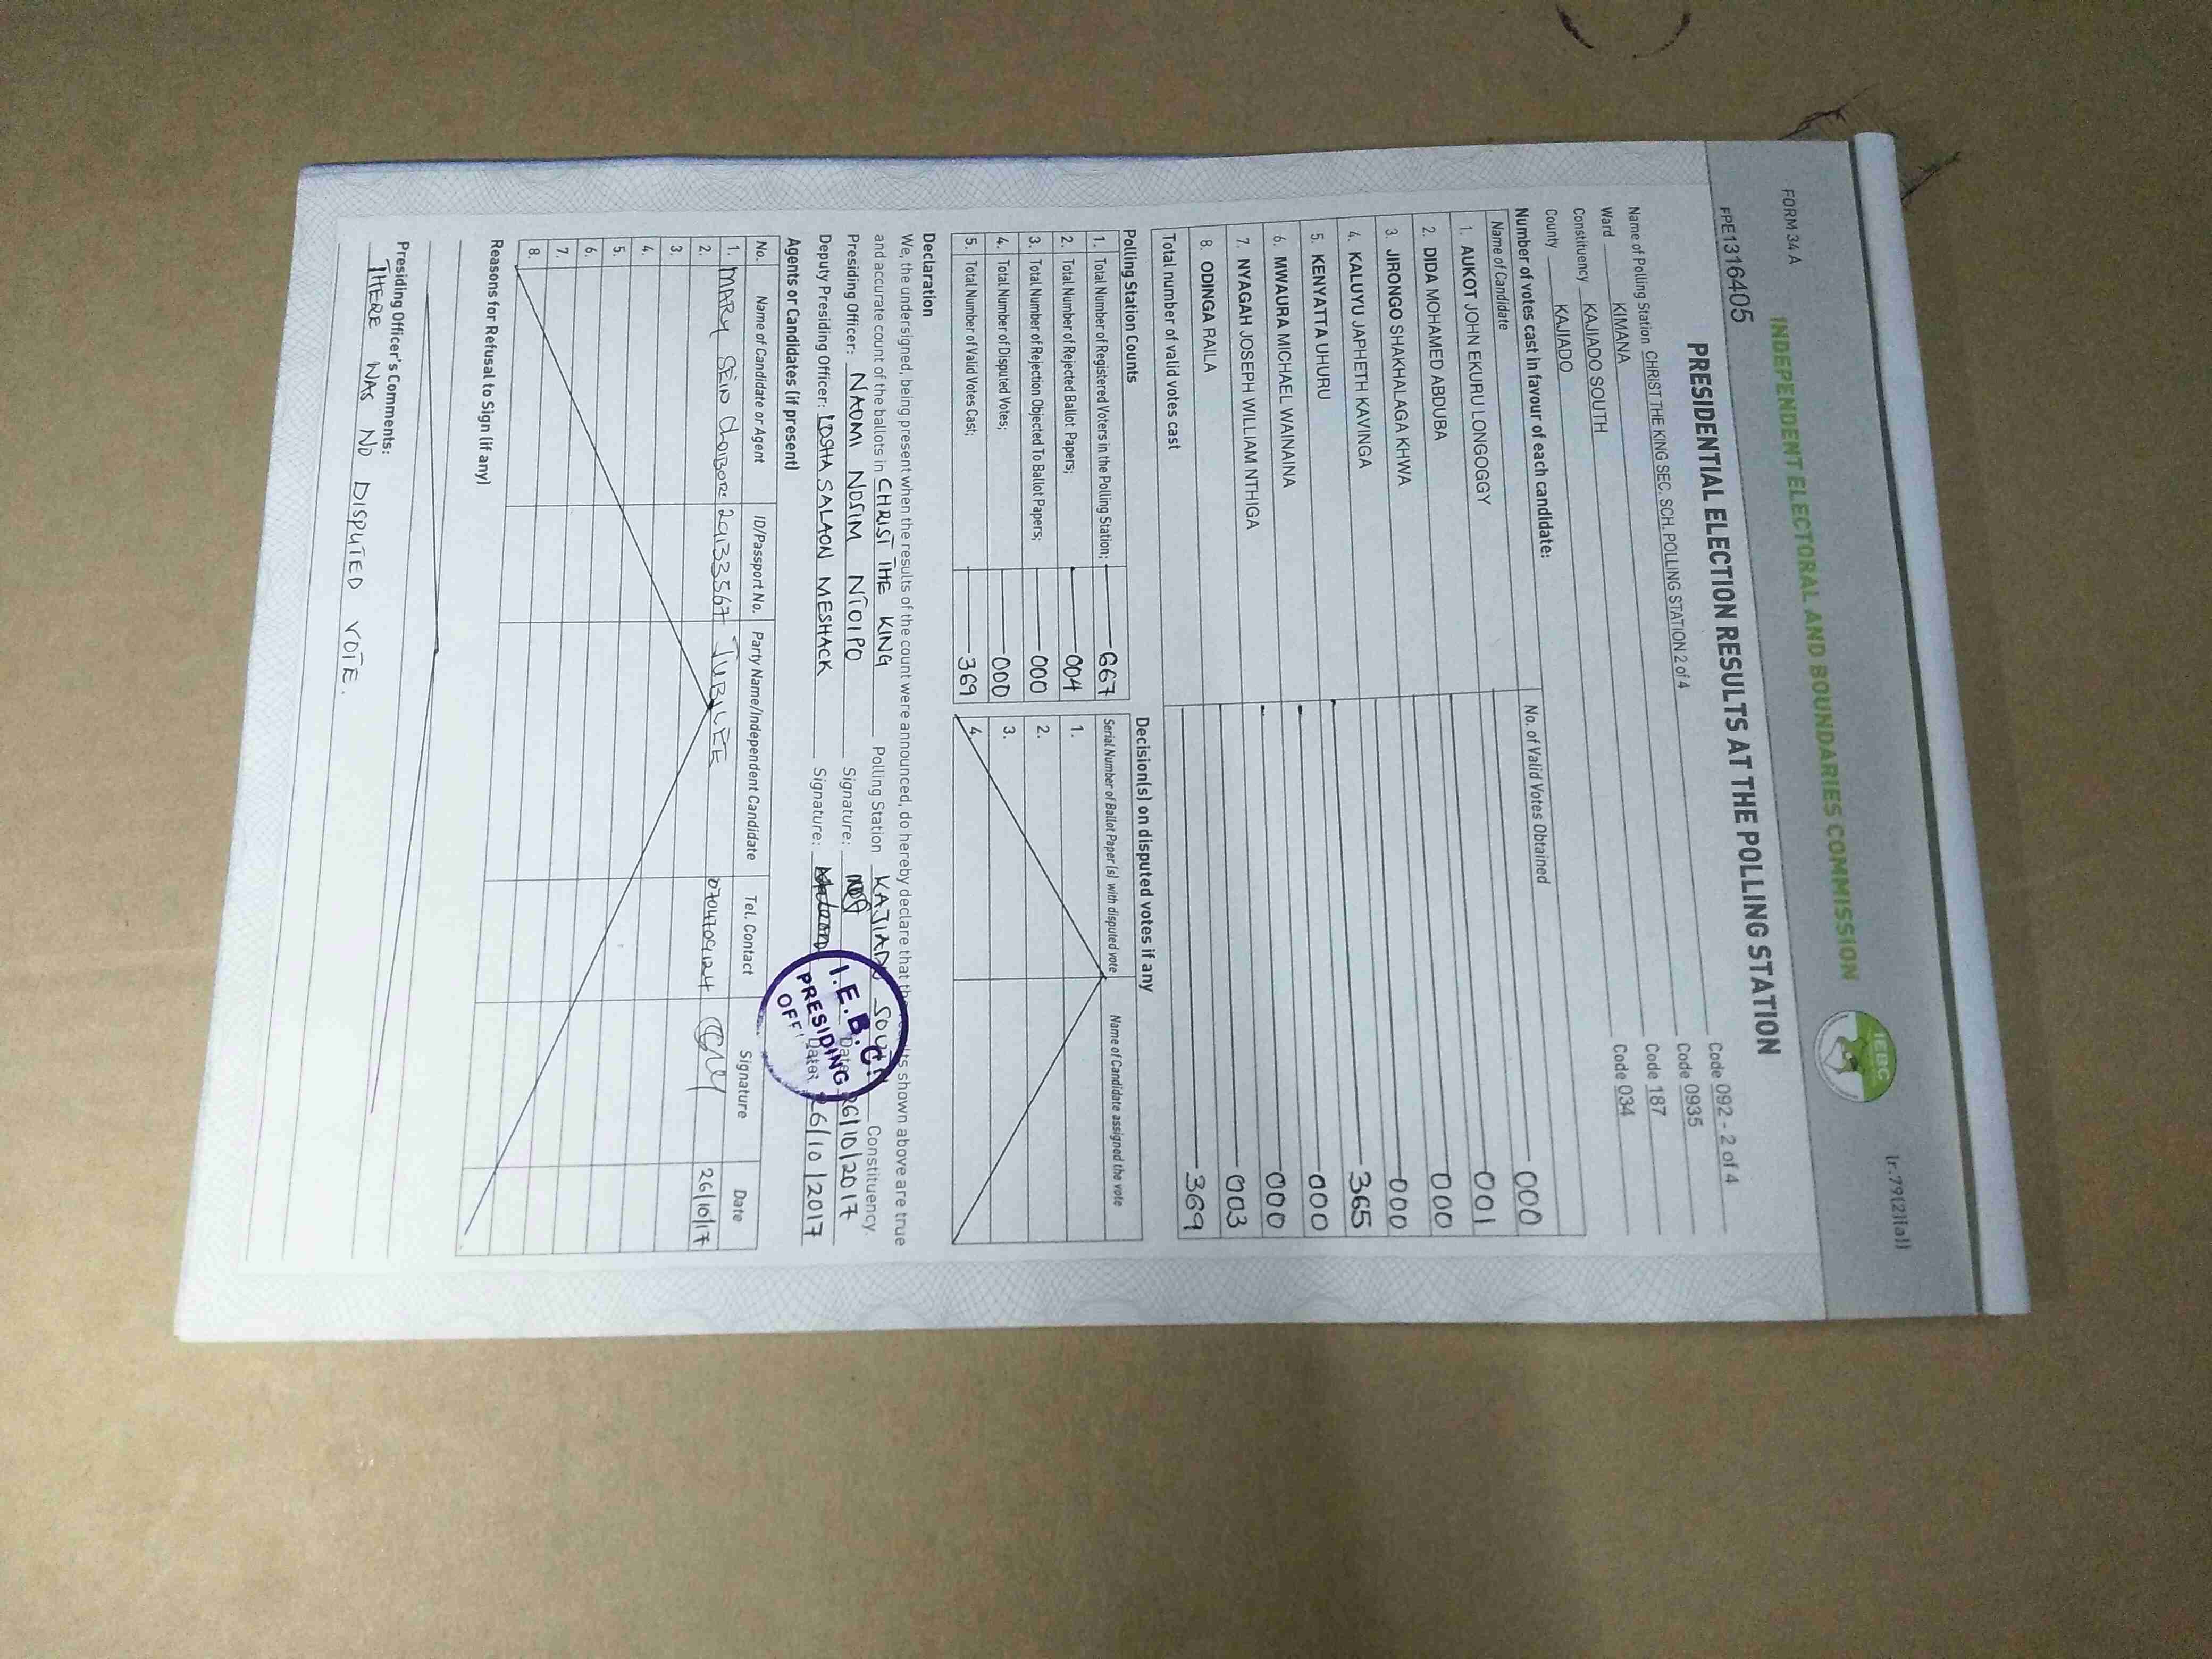 FORM 34 A
(r.79(2)(a))
INDEPENDENT ELECTORAL AND BOUNDARIES COMMISSION
IEBC
PRESIDENTIAL ELECTION RESULTS AT THE POLLING STATION
FPE1316405
Name of Polling Station CHRIST THE KING SEC. SCH. POLLING STATION 2 of 4 Code 092 - 2 of 4
Ward KIMANA Code 0935
Constituency KAJIADO SOUTH Code 187
County KAJIADO Code 034
Number of votes cast in favour of each candidate:
Name of Candidate No. of Valid Votes Obtained
1. AUKOT JOHN EKURU LONGOGGY 000
2. DIDA MOHAMED ABDUBA 001
3. JIRONGO SHAKHALAGA KHWA 000
4. KALUYU JAPHETH KAVINGA 000
5. KENYATTA UHURU 365
6. MWAURA MICHAEL WAINAINA 000
7. NYAGAH JOSEPH WILLIAM NTHIGA 000
8. ODINGA RAILA 003
Total number of valid votes cast 369
Polling Station Counts
1. Total Number of Registered Voters in the Polling Station; 667
2. Total Number of Rejected Ballot Papers; 004
3. Total Number of Rejection Objected To Ballot Papers; 000
4. Total Number of Disputed Votes; 000
5. Total Number of Valid Votes Cast; 369
Decision(s) on disputed votes if any
Serial Number of Ballot Paper(s) with disputed vote Name of Candidate assigned the vote
1.
2.
3.
4.
Declaration
We, the undersigned, being present when the results of the count were announced, do hereby declare that the results shown above are true
and accurate count of the ballots in CHRIST THE KING Polling Station KAJIADO SOUTH Constituency.
Presiding Officer: NAOMI NOSIM NTOIPO Signature: Date: 26/10/2017
Deputy Presiding Officer: LOSHA SALAON MESHACK Signature: Date: 26/10/2017
I.E.B.C.
PRESIDING
Agents or Candidates (if present)
No. Name of Candidate or Agent ID/Passport No. Party Name/Independent Candidate Tel. Contact Signature Date
1. MARY SEIO 29133567 JUBILEE 0704709124 26/10/17
2.
3.
4.
5.
6.
7.
8.
Reasons for Refusal to Sign (if any)
Presiding Officer's Comments:
THERE WAS NO DISPUTED VOTE.